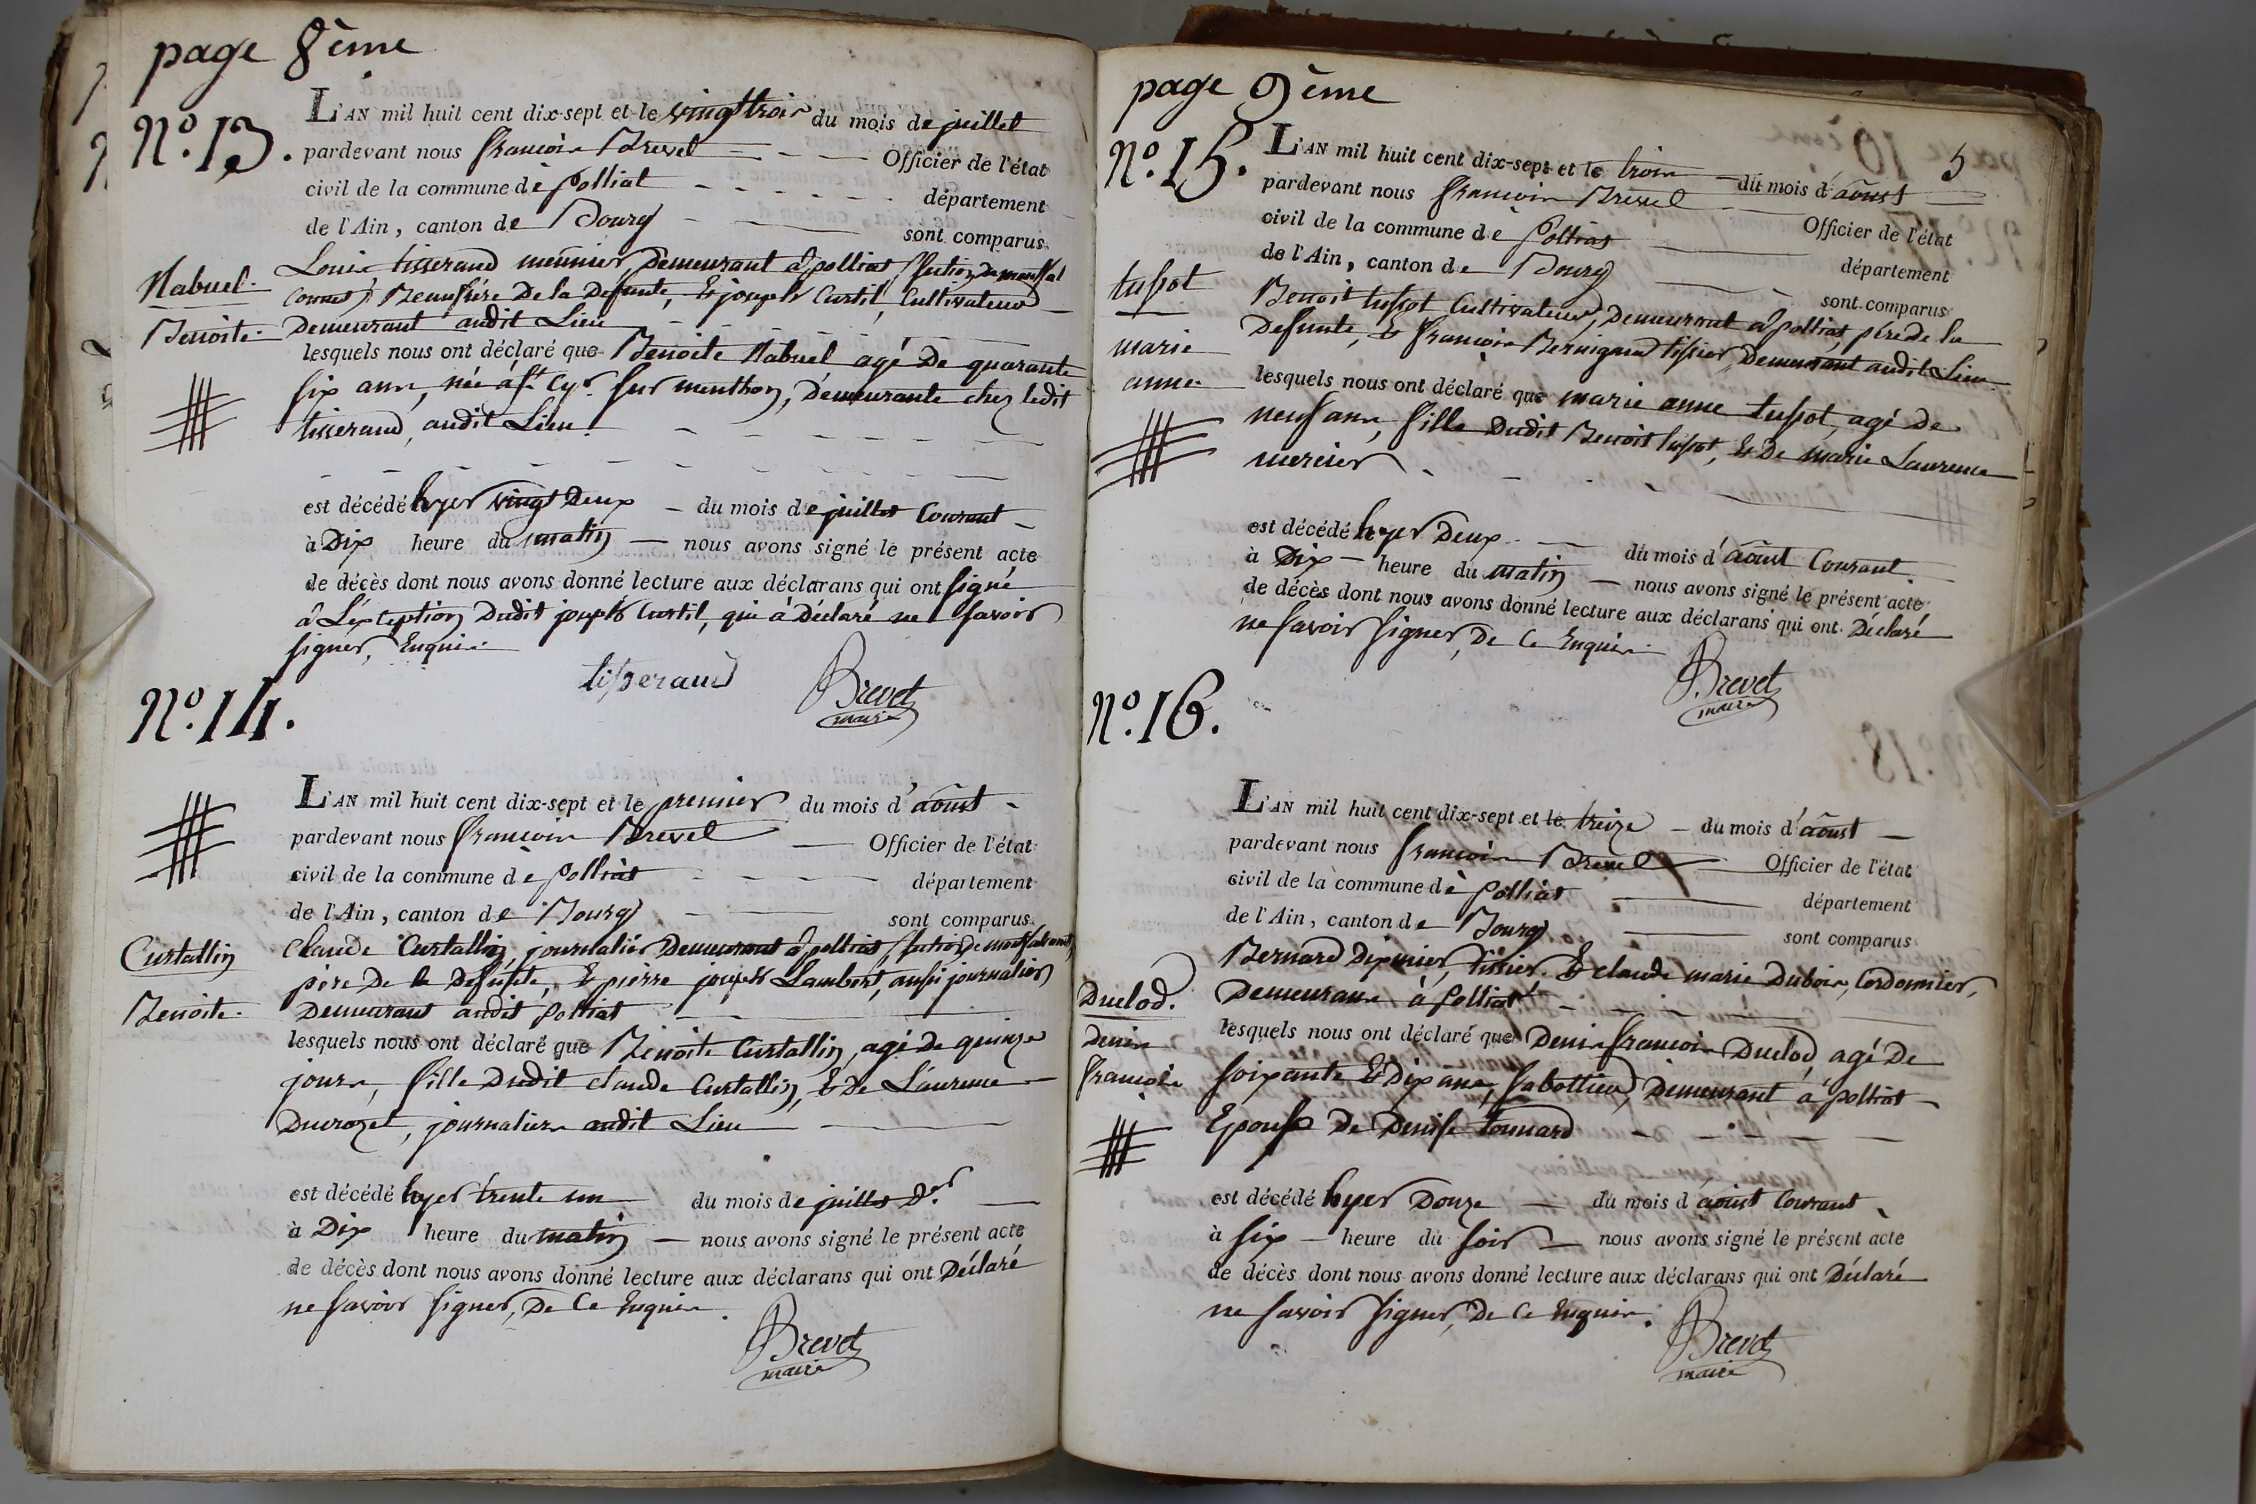 page 8ème
N.° 13.
L'AN mil huit cent dix-sept et le vingt trois du mois de juillet
pardevant nous françois Brevet Officier de l'état
civil de la commune de polliat département
de l'Ain, canton de Bourg sont comparus
Louis tisserand meunier, Demeurant à polliat, section de montfal
connet) Beaufrère De la Defunte, & joseph Curtil, Cultivateur
Demeurant audit Lieu
Nabuel
Benoite
lesquels nous ont déclaré que Benoite Nabuel agé De quarante
six ans, née à st. Cyr sur menthon, Demeurante chez ledit
tisserand, audit Lieu.
est décédé hyer vingt Deux du mois de juillet Courant
à Dix heure du matin nous avons signé le présent acte
de décès dont nous avons donné lecture aux déclarans qui ont signé
à L'exception Dudit joseph Curtil, qui à Déclaré ne savoir
signer, Enquis
tisserand Brevet
maire
N.° 14.
L'AN mil huit cent dix-sept et le premier du mois d'aoust
pardevant nous françois Brevet Officier de l'état
civil de la commune de polliat département
de l'Ain, canton de Bourg sont comparus
Claude Curtallin, journalier Demeurant à polliat, section De montfalconnet,
père De la Defunte, & pierre joseph Lambert, aussi journalier
Demeurant audit polliat
Curtallin
Benoite
lesquels nous ont déclaré que Benoite Curtallin, agé de quinze
jours, fille Dudit claude Curtallin, & De Laurence
Ducrozet, journaliers audit Lieu
est décédé hyer trente un du mois de juillet D.er
à Dix heure du matin nous avons signé le présent acte
de décès dont nous avons donné lecture aux déclarans qui ont Déclaré
ne savoir signer, De Ce Enquis.
Brevet
maire
page 9ème
5
N.° 15.
L'AN mil huit cent dix-sept et le trois du mois d'aoust
pardevant nous françois Brevet Officier de l'état
civil de la commune de polliat département
de l'Ain, canton de Bourg sont comparus
Benoit tussot Cultivateur, Demeurant à polliat, père de la
Defunte, & françois Bernigaud tissier, Demeurant audit Lieu
tussot
marie
anne
lesquels nous ont déclaré que marie anne tussot, agé De
neuf ans, fille Dudit Benoit tussot, & De marie Laurence
mercier
est décédé hyer Deux du mois d'aoust Courant
à Dix heure du matin nous avons signé le présent acte
de décès dont nous avons donné lecture aux déclarans qui ont Déclaré
ne savoir signer, De Ce Enquis.
Brevet
maire
N.° 16.
L'AN mil huit cent dix-sept et le treize du mois d'aoust
pardevant nous françois Brevet Officier de l'état
civil de la commune de polliat département
de l'Ain, canton de Bourg sont comparus
Bernard Depinier, tissier & claude marie Dubois, Cordonnier,
Demeurans à polliat
Duclod.
Denis
françois
lesquels nous ont déclaré que Denis françois Duclod, agé De
soixante & Dix ans, sabottier, Demeurant à polliat
Epoux De Denise tonnard
est décédé hyer Douze du mois d'aoust Courant
à six heure du soir nous avons signé le présent acte
de décès dont nous avons donné lecture aux déclarans qui ont Déclaré
ne savoir signer, De Ce Enquis.
Brevet
maire